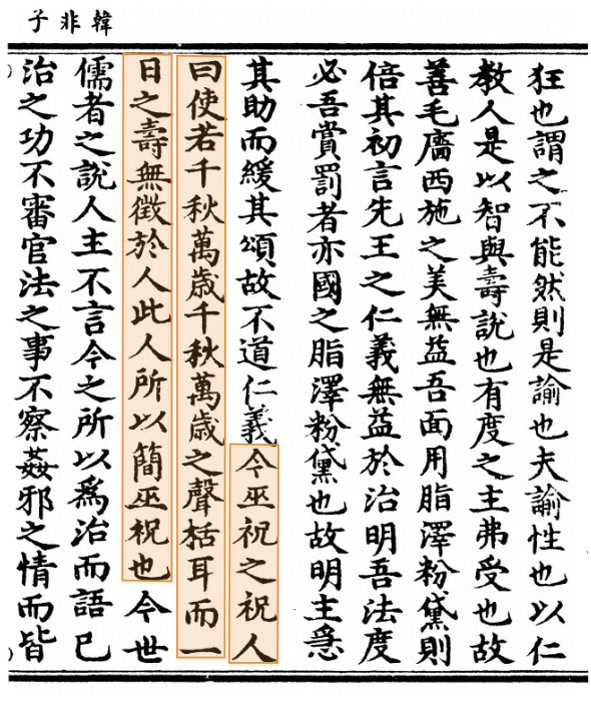 韓非子
狂也謂之不能然則是諭也夫諭性也以仁
教人是以智與壽說也有度之主弗受也故
善毛廧西施之美無益吾面用脂澤粉黛則
倍其初言先王之仁義無益於治明吾法度
必吾賞罰者亦國之脂澤粉黛也故明主急
其助而緩其頌故不道仁義今巫祝之祝人
曰使若千秋萬歲千秋萬歲之聲栝耳而一
日之壽無徵於人此人所以簡巫祝也今世
儒者之說人主不言今之所以爲治而語已
治之功不審官法之事不察姦邪之情而皆